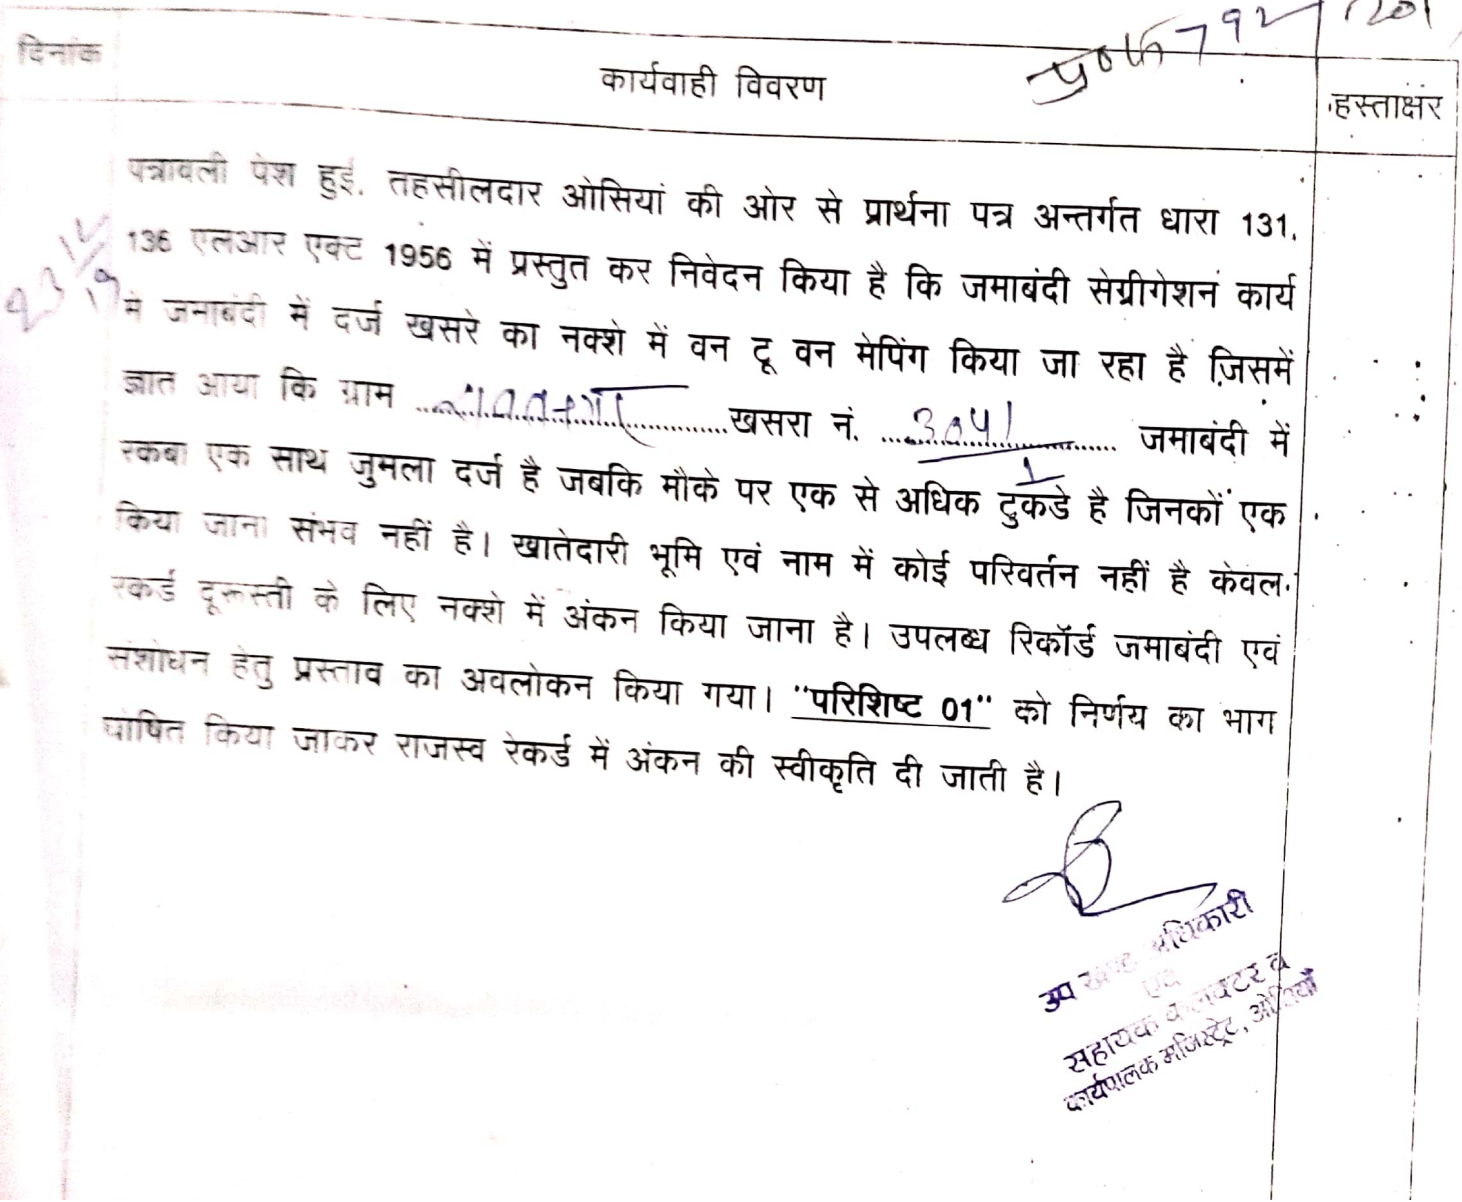 792
दिनांक
कार्यवाही विवरण
हस्ताक्षर
पत्रावली पेश हुई. तहसीलदार ओसियां की ओर से प्रार्थना पत्र अन्तर्गत धारा 131,
136 एलआर एक्ट 1956 में प्रस्तुत कर निवेदन किया है कि जमाबंदी सेग्रीगेशन कार्य
में जमाबंदी में दर्ज खसरे का नक्शे में वन टू वन मेपिंग किया जा रहा है जिसमें
ज्ञात आया कि ग्राम ........................... खसरा नं. .................... जमाबंदी में
रकबा एक साथ जुमला दर्ज है जबकि मौके पर एक से अधिक टुकडे है जिनकों एक
किया जाना संभव नहीं है। खातेदारी भूमि एवं नाम में कोई परिवर्तन नहीं है केवल
रेकर्ड दूरूस्ती के लिए नक्शे में अंकन किया जाना है। उपलब्ध रिकॉर्ड जमाबंदी एवं
संशोधन हेतु प्रस्ताव का अवलोकन किया गया। "परिशिष्ट 01" को निर्णय का भाग
घोषित किया जाकर राजस्व रेकर्ड में अंकन की स्वीकृति दी जाती है।
उप खण्ड अधिकारी
एवं
सहायक कलक्टर व
कार्यपालक मजिस्ट्रेट, ओसियाँ